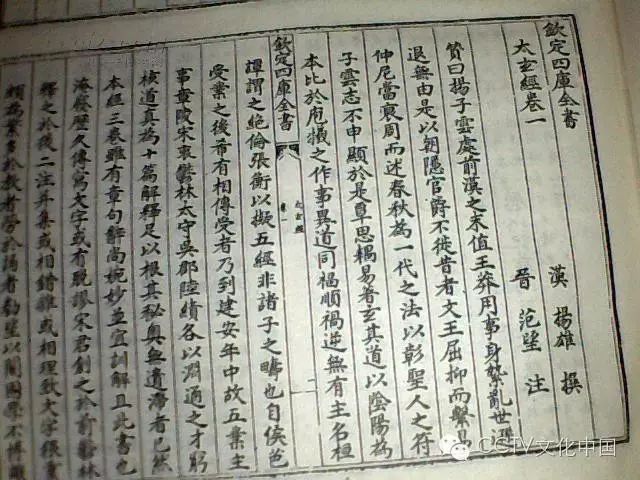 欽定四庫全書
漢 揚雄 撰
太玄經卷一
晉 范望 注
贊曰揚子雲處前漢之末值王莽用事身縶亂世遜
退無由是以朝隱官爵不徙昔者文王屈抑而繫易
仲尼當衰周而述春秋為一代之法以彰聖人之符
子雲志不申顯於是草思易著玄其道以陰陽為
本比於庖犧之作事異道同福順禍逆無有主名桓
欽定四庫全書
太玄經
卷一
譚謂之絕倫張衡以擬五經非諸子之疇也自侯芭
受業之後希有相傳受者乃到建安年中故五業主
事章陵宋衷鬱林太守吳郡陸績各以淵通之才窮
核道真為十篇解釋足以根其秘奧無遺滯者已然
本經三卷雖有章句辭尚婉妙並宜訓解且此書也
淹廢歷久傳寫文字或有脫謬宋君創之於前鬱林
釋之於後二注并集或相錯雜或相理致文字繁重
頗為繁多於教者勞於誦者勸望以闇固學不博
CCTV文化中国